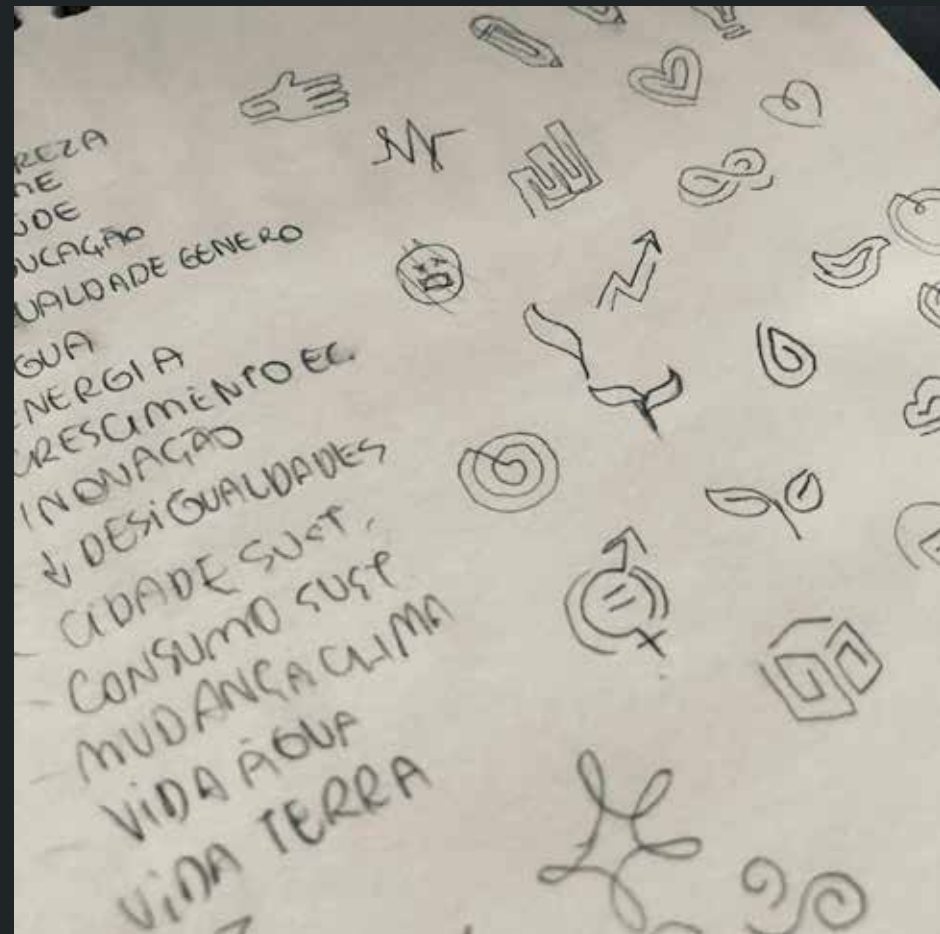 REZA
ME
UDE
UCAÇÃO
UALDADE GENERO
GUA
ENERGIA
CRESCIMENTO EC.
INOVAÇÃO
↓ DESIGUALDADES
CIDADE SUST.
- CONSUMO SUST
- MUDANÇA CLIMA
- VIDA ÁGUA
- VIDA TERRA